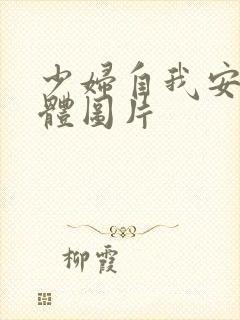 少婦自我安
體圖片
柳霞